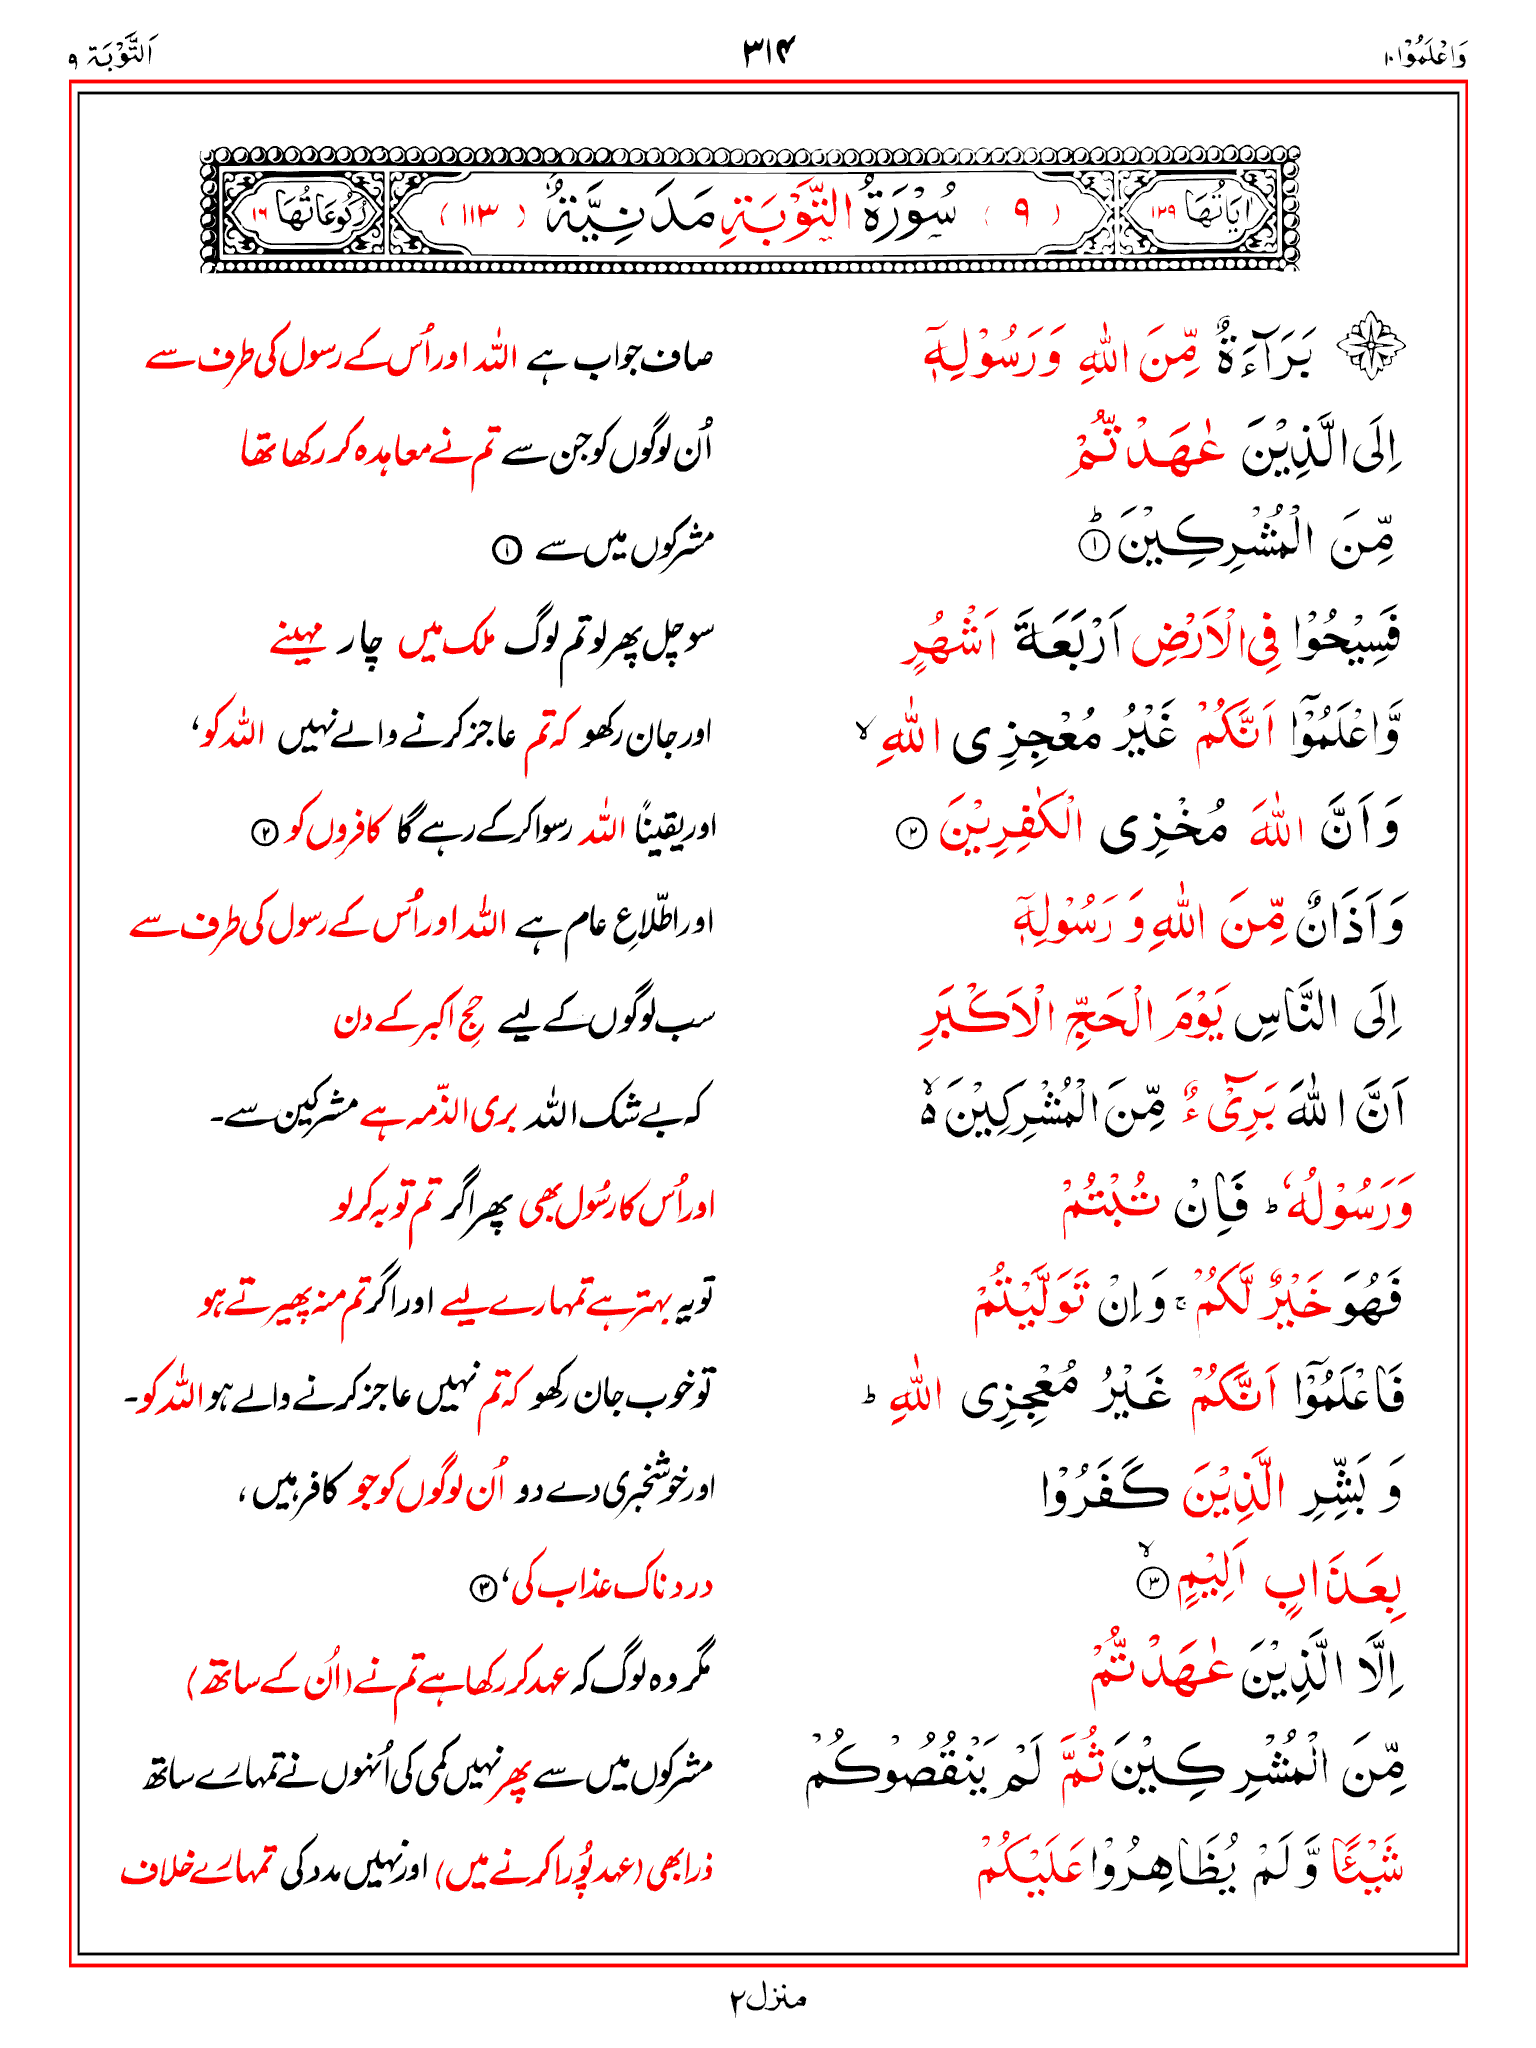 وَاعْلَمُوْا ۱۰
۳۱۴
اَلتَّوْبَۃ ۹
اٰیَاتُهَا ۱۲۹
﴿ ۹ ﴾ سُوْرَةُ التَّوْبَةِ مَدَنِيَّةٌ ﴿ ۱۱۳ ﴾
رُكُوْعَاتُهَا ۱۶
بَرَآءَةٌ مِّنَ اللّٰهِ وَرَسُوْلِهٖۤ
صاف جواب ہے اللہ اور اُس کے رسول کی طرف سے
اِلَى الَّذِيْنَ عٰهَدْتُّمْ
اُن لوگوں کو جن سے تم نے معاہدہ کر رکھا تھا
مِّنَ الْمُشْرِكِيْنَ ؕ ۱
مشرکوں میں سے ۱
فَسِيْحُوْا فِى الْاَرْضِ اَرْبَعَةَ اَشْهُرٍ
سو چل پھر لو تم لوگ ملک میں چار مہینے
وَّاعْلَمُوْۤا اَنَّكُمْ غَيْرُ مُعْجِزِى اللّٰهِ ۙ
اور جان رکھو کہ تم عاجز کرنے والے نہیں اللہ کو،
وَاَنَّ اللّٰهَ مُخْزِى الْكٰفِرِيْنَ ۲
اور یقیناً اللہ رسوا کر کے رہے گا کافروں کو ۲
وَاَذَانٌ مِّنَ اللّٰهِ وَ رَسُوْلِهٖۤ
اور اطّلاعِ عام ہے اللہ اور اُس کے رسول کی طرف سے
اِلَى النَّاسِ يَوْمَ الْحَجِّ الْاَكْبَرِ
سب لوگوں کے لیے حجِ اکبر کے دن
اَنَّ اللّٰهَ بَرِىْٓءٌ مِّنَ الْمُشْرِكِيْنَ ۙ۵
کہ بے شک اللہ بری الذّمہ ہے مشرکین سے۔
وَرَسُوْلُهٗ ؕ فَاِنْ تُبْتُمْ
اور اُس کا رسُول بھی پھر اگر تم توبہ کر لو
فَهُوَ خَيْرٌ لَّكُمْ ۚ وَاِنْ تَوَلَّيْتُمْ
تو یہ بہتر ہے تمہارے لیے اور اگر تم منہ پھیرتے ہو
فَاعْلَمُوْۤا اَنَّكُمْ غَيْرُ مُعْجِزِى اللّٰهِ ؕ
تو خوب جان رکھو کہ تم نہیں عاجز کرنے والے ہو اللہ کو۔
وَ بَشِّرِ الَّذِيْنَ كَفَرُوْا
اور خوشخبری دے دو اُن لوگوں کو جو کافر ہیں،
بِعَذَابٍ اَلِيْمٍ ۙ ۳
دردناک عذاب کی، ۳
اِلَّا الَّذِيْنَ عٰهَدْتُّمْ
مگر وہ لوگ کہ عہد کر رکھا ہے تم نے (اُن کے ساتھ)
مِّنَ الْمُشْرِكِيْنَ ثُمَّ لَمْ يَنْقُصُوْكُمْ
مشرکوں میں سے پھر نہیں کمی کی اُنہوں نے تمہارے ساتھ
شَيْـًٔا وَّ لَمْ يُظَاهِرُوْا عَلَيْكُمْ
ذرا بھی (عہد پُورا کرنے میں) اور نہیں مدد کی تمہارے خلاف
منزل ۲